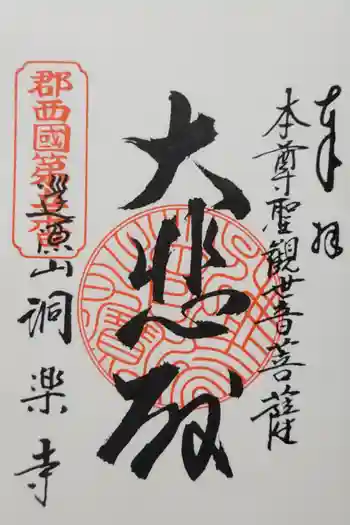 奉拝
本尊聖観世音菩薩
大悲殿
郡西國第
山洞楽寺